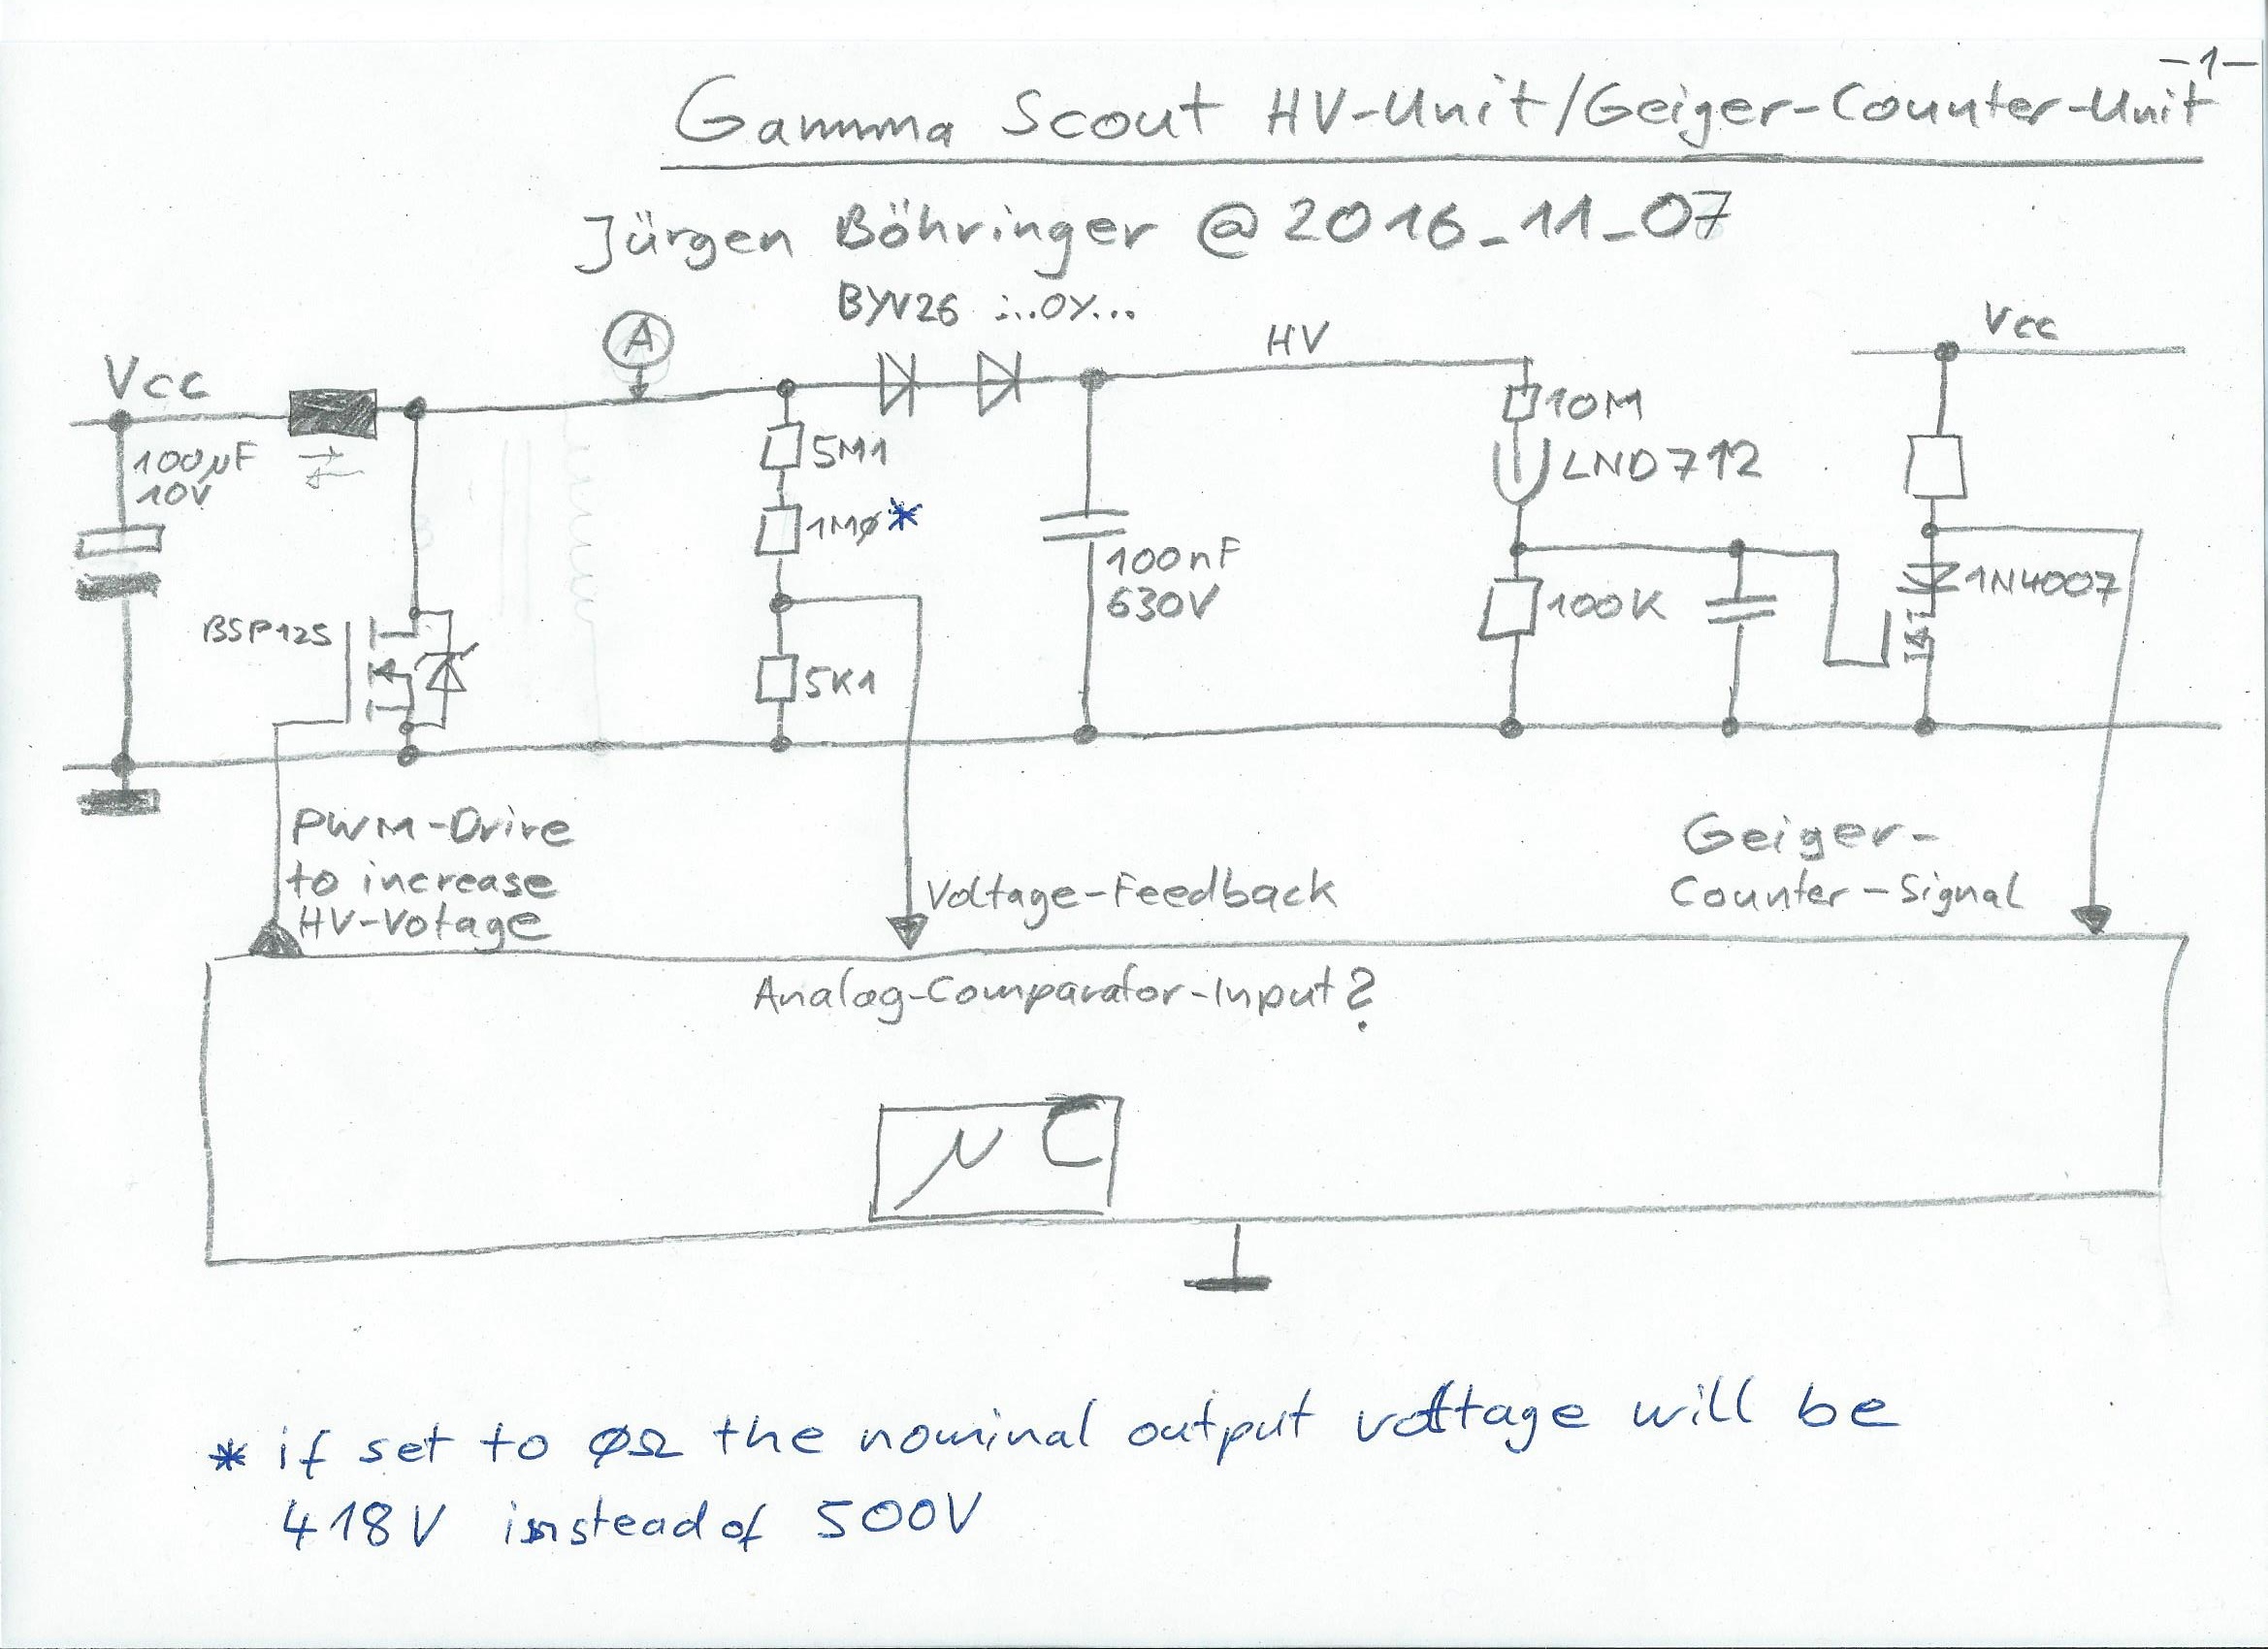 -1-
Gamma Scout HV-Unit/Geiger-Counter-Unit
Jürgen Böhringer @ 2016_11_07
BYV26 :..OY...
A
HV
Vcc
Vcc
100µF
10V
5M1
1MØ*
10M
LND712
100nF
630V
100K
1N4007
BSP125
5K1
PWM-Drive
to increase
HV-Votage
Voltage-Feedback
Geiger-
Counter-Signal
Analog-Comparator-Input?
µC
* if set to ØΩ the nominal output voltage will be
418V instead of 500V